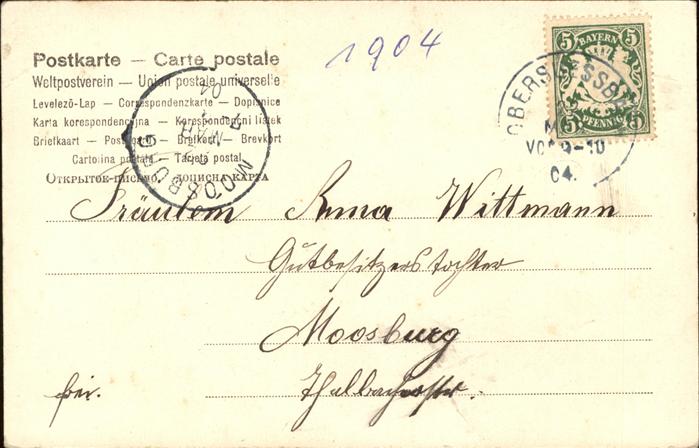 Postkarte — Carte postale
Weltpostverein — Union postale universelle
Levelező-Lap — Correspondenzkarte — Dopisnice
Karta korespondencyjna — Korespondenční lístek
Briefkaart — Postcard — Brefkort — Brevkort
Cartolina postale — Tarjeta postal
Открытое письмо. —
1904
BAYERN
5 5
5 5
PFENNIG
VOR 9-10
04.
MOOSBURG
MAR
04
Fräulein Anna Wittmann
Gutbesitzerstochter
Moosburg
frei. Thalbacherstr.